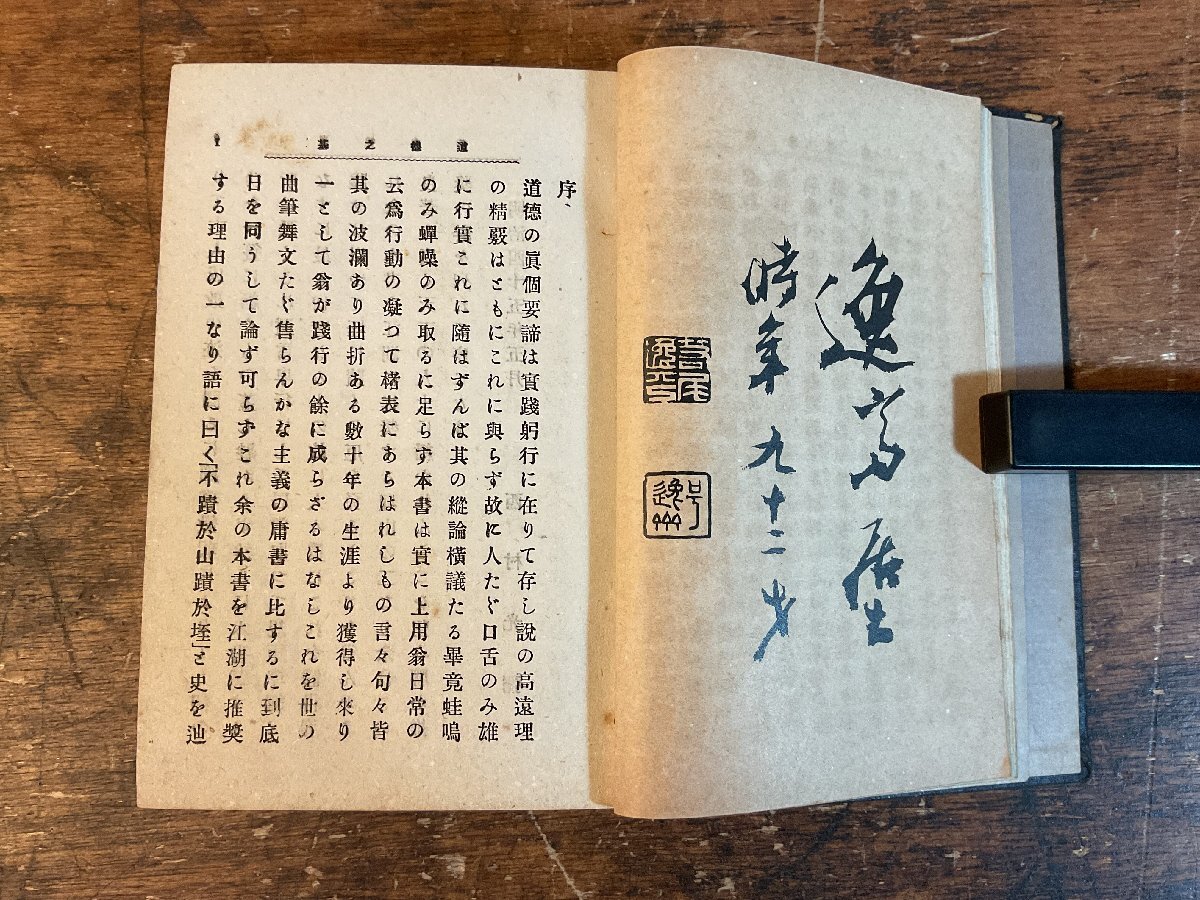 逸事居士
時年九十二才
号逸州
道德之基
序、
道德の眞個要諦は實踐躬行に在りて存し說の高遠理
の精覈はともにこれに與らず故に人たゞ口舌のみ雄
に行實これに隨はずんば其の縱論橫議たる畢竟蛙鳴
のみ蟬噪のみ取るに足らず本書は實に上用翁日常の
云爲行動の凝つて楮表にあらはれしもの言々句々皆
其の波瀾あり曲折ある數十年の生涯より獲得し來り
一として翁が踐行の餘に成らざるはなしこれを世の
曲筆舞文たゞ售らんかな主義の庸書に比するに到底
日を同うして論ず可らずこれ余の本書を江湖に推奬
する理由の一なり語に曰く「不蹟於山蹟於垤」と史を辿